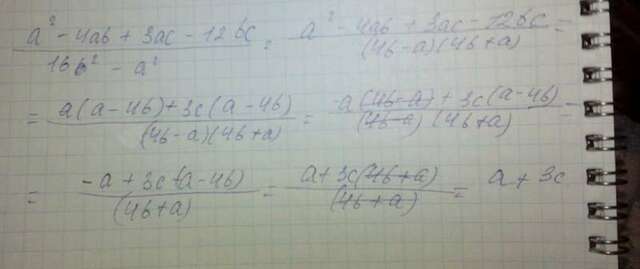 (a² - 4ab + 3ac - 12bc)/(16b² - a²) = (a² - 4ab + 3ac - 12bc)/((4b-a)(4b+a)) =
= (a(a-4b)+3c(a-4b))/((4b-a)(4b+a)) = (-a(4b-a)+3c(a-4b))/((4b-a)(4b+a)) =
= (-a+3c+(a-4b))/((4b+a)) = (a+3c(4b+a))/((4b+a)) = a+3c